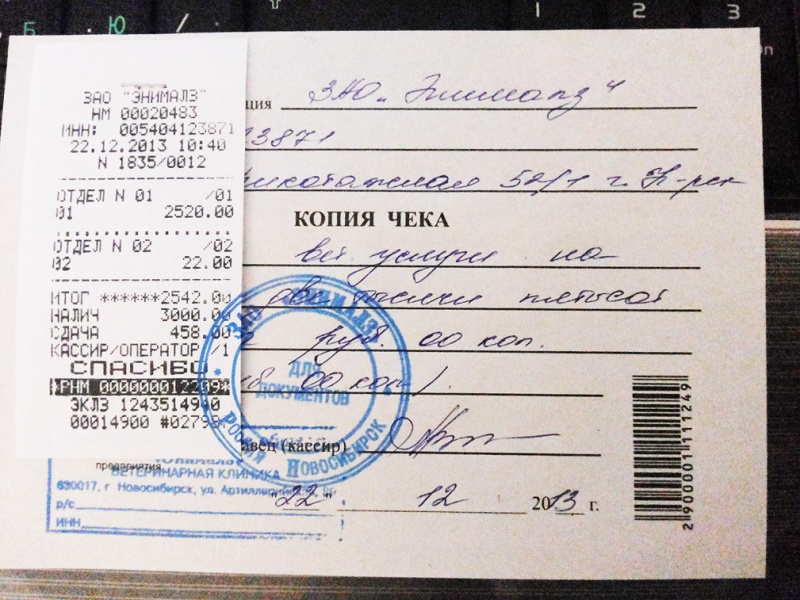 ЗАО "ЭНИМАЛЗ"
НМ 00020483
ИНН: 005404123871
22.12.2013 10:40
N 1835/0012
ОТДЕЛ N 01 /01
01 2520.00
ОТДЕЛ N 02 /02
02 22.00
ИТОГ ******2542.00
НАЛИЧ 3000.00
СДАЧА 458.00
КАССИР/ОПЕРАТОР /1
СПАСИБО
РНМ 000000012209*
ЭКЛЗ 1243514900
00014900 #02793
ция ЗАО „Энималз"
3871
52/1 г. Н-рск
КОПИЯ ЧЕКА
вет услуги на
две тысячи пятьсот
руб. 00 коп.
00 коп).
авец (кассир)
"22" 12 2013 г.
предприятия
ЗАО ЭНИМАЛЗ
ДЛЯ
ДОКУМЕНТОВ
НОВОСИБИРСК
ВЕТЕРИНАРНАЯ КЛИНИКА
630017, г Новосибирск, ул. Артиллерий
р/с
ИНН
2900001111249
Б Ю /
1 2 3